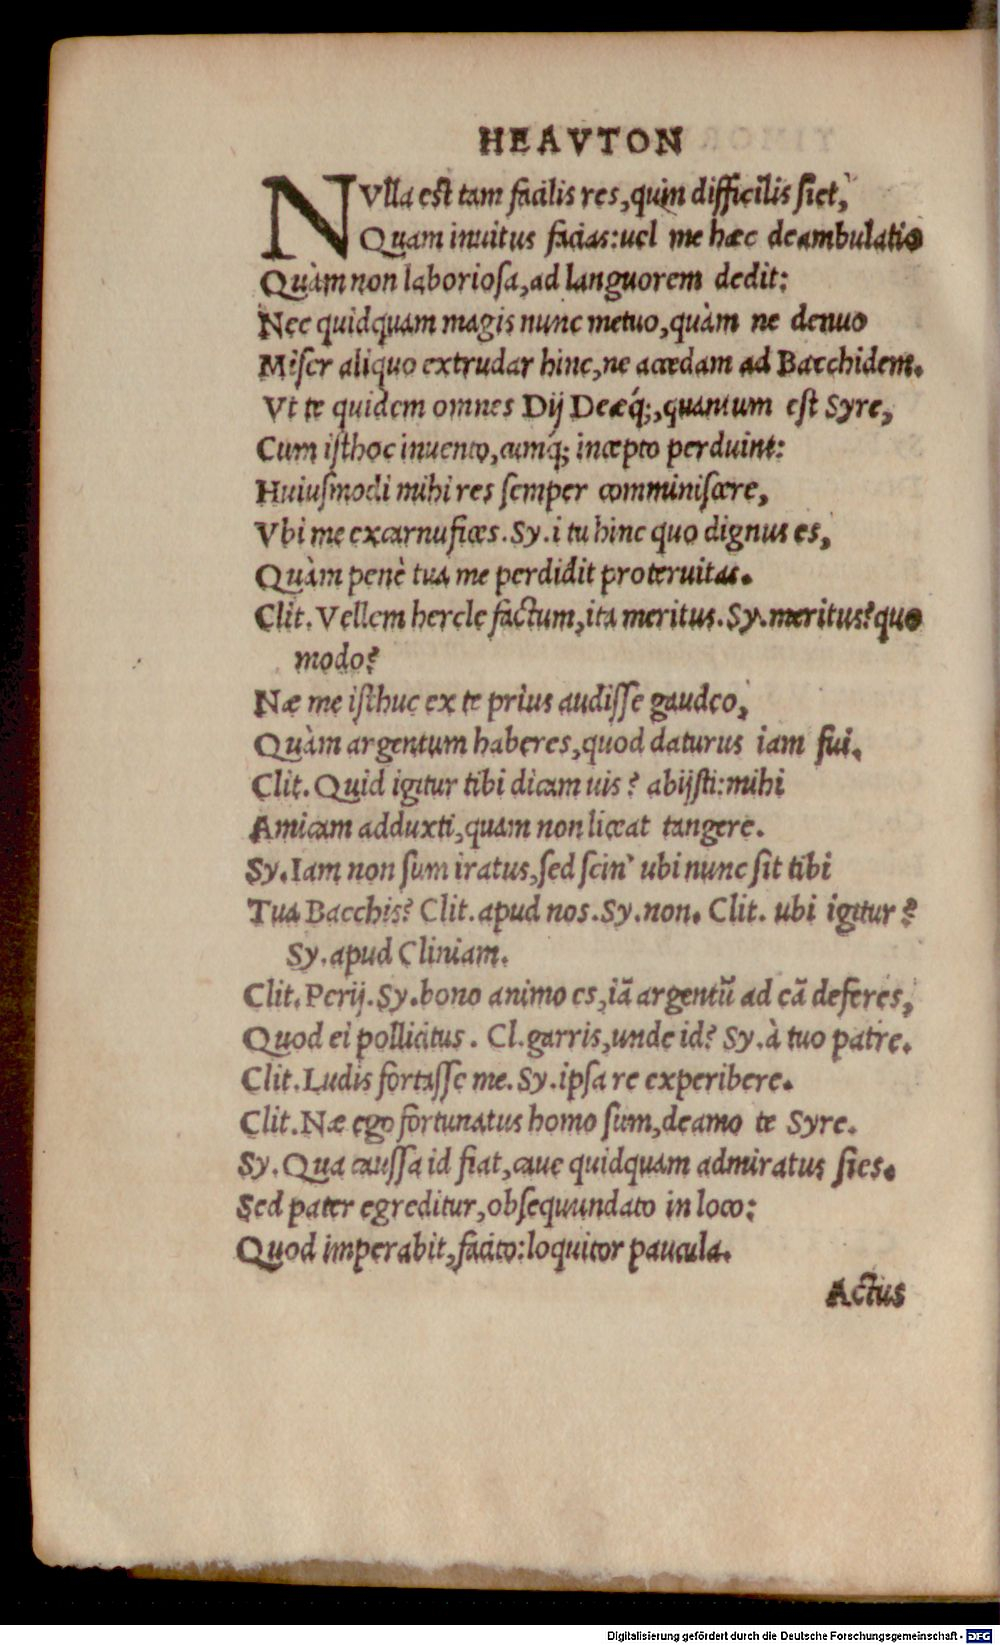 HEAVTON
NVlla est tam facilis res, quin difficilis siet,
Quam inuitus facias: uel me hæc deambulatio
Quàm non laboriosa, ad languorem dedit:
Nec quidquam magis nunc metuo, quàm ne denuo
Miser aliquo extrudar hinc, ne accedam ad Bacchidem.
Vt te quidem omnes Dij Deæq́;, quantum est Syre,
Cum isthoc inuento, cumq́; incepto perduint:
Huiusmodi mihi res semper comminiscere,
Vbi me excarnufices. Sy. i tu hinc quo dignus es,
Quàm penè tua me perdidit proteruitas.
Clit. Vellem hercle factum, ita meritus. Sy. meritus? quo
modo?
Næ me isthuc ex te prius audisse gaudeo,
Quàm argentum haberes, quod daturus iam fui.
Clit. Quid igitur tibi dicam uis? abijsti: mihi
Amicam adduxti, quam non liceat tangere.
Sy. Iam non sum iratus, sed scin' ubi nunc sit tibi
Tua Bacchis? Clit. apud nos. Sy. non. Clit. ubi igitur?
Sy. apud Cliniam.
Clit. Perij. Sy. bono animo es, iã argentũ ad eã deferes,
Quod ei pollicitus. Cl. garris, unde id? Sy. à tuo patre.
Clit. Ludis fortasse me. Sy. ipsa re experibere.
Clit. Næ ego fortunatus homo sum, deamo te Syre.
Sy. Qua caussa id fiat, caue quidquam admiratus sies.
Sed pater egreditur, obsequundato in loco:
Quod imperabit, facito: loquitor paucula.
Actus
Digitalisierung gefördert durch die Deutsche Forschungsgemeinschaft - DFG